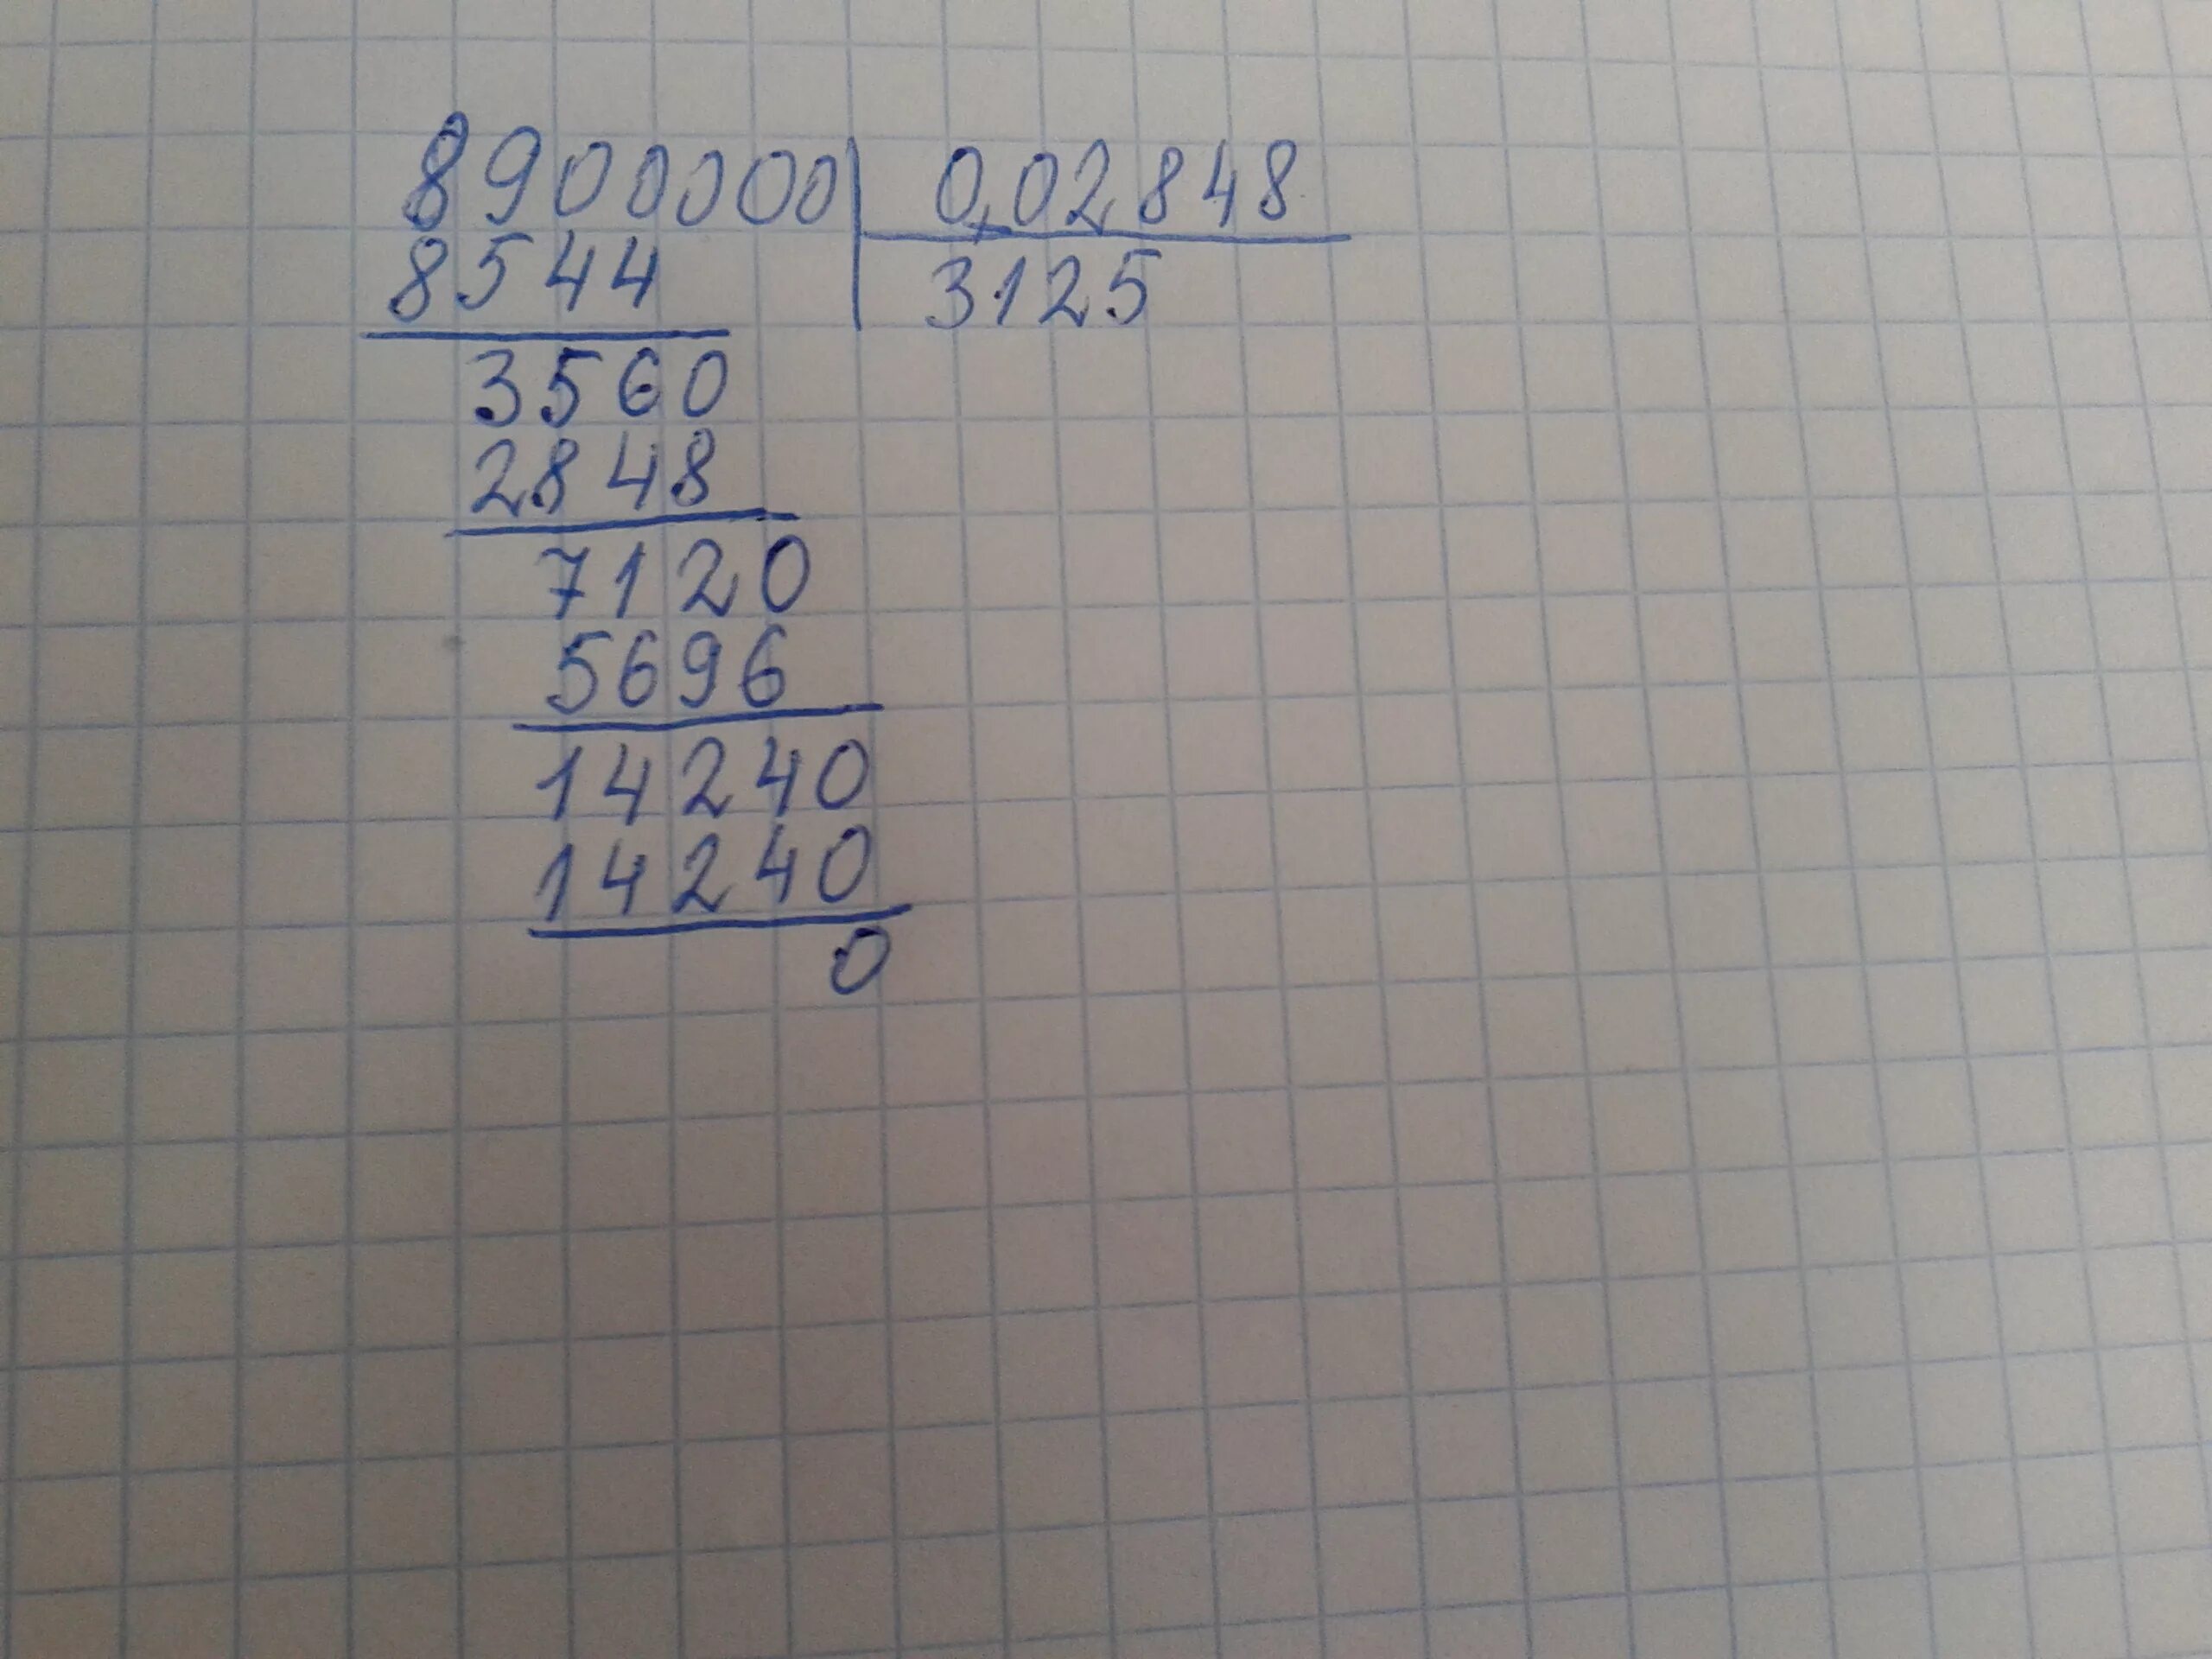 8900000 0,02848
8544 3125
3560
2848
7120
5696
14240
14240
0